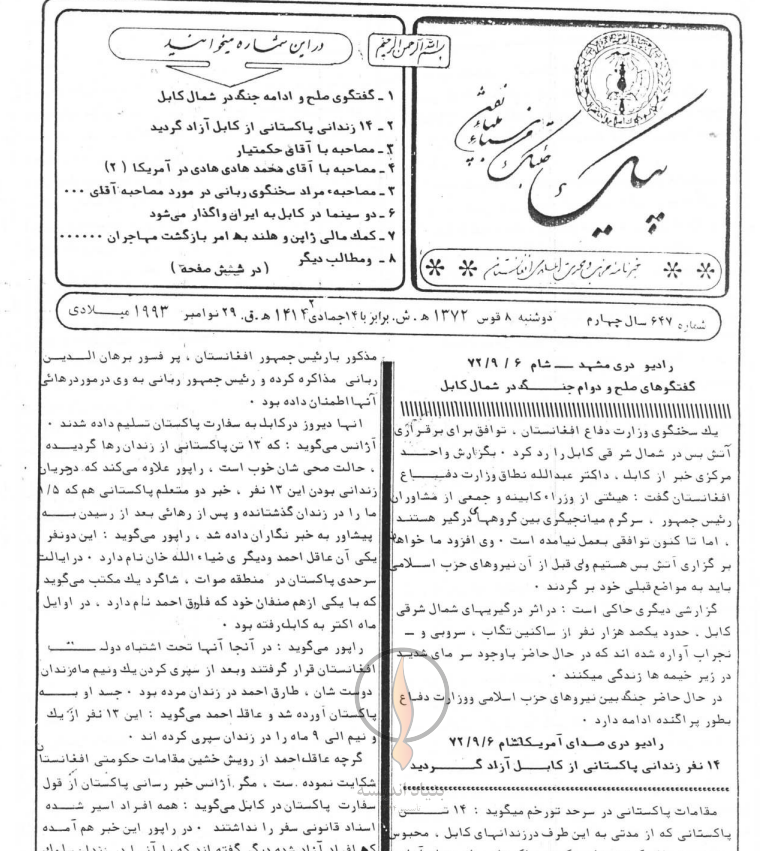 بسم الله الرحمن الرحیم
در این شماره میخوانید
۱ ـ گفتگوی صلح و ادامه جنگ در شمال کابل
۲ ـ ۱۴ زندانی پاکستانی از کابل آزاد گردید
۳ ـ مصاحبه با آقای حکمتیار
۴ ـ مصاحبه با آقای محمد هادی هادی در آمریکا ( ۲ )
۳ ـ مصاحبهء مراد سخنگوی ربانی در مورد مصاحبه آقای ۰۰۰
۶ ـ دو سینما در کابل به ایران واگذار می‌شود
۷ ـ کمک مالی ژاپن و هلند به امر بازگشت مهاجران ۰۰۰۰۰۰
۸ ـ ومطالب دیگر
( در شش صفحه )
پیک
شماره ۶۴۷ ـ سال چهارم دوشنبه ۸ قوس ۱۳۷۲ ه . ش . برابر با ۱۴ جمادی ۲ ۱۴۱۴ ه .ق . ۲۹ نوامبر ۱۹۹۳ میلادی
رادیو دری مشهد ـ شام ۶ / ۹ / ۷۲
گفتگوهای صلح و دوام جنگ در شمال کابل
یک سخنگوی وزارت دفاع افغانستان ، توافق برای برقراری
آتش بس در شمال شر قی کابل را رد کرد ۰ بگزارش واحد
مرکزی خبر از کابل ، داکتر عبدالله نطاق وزارت دفاع
افغانستان گفت : هیئتی از وزراء کابینه و جمعی از مشاوران
رئیس جمهور ، سرگرم میانجیگری بین گروههای درگیر هستند
، اما تا کنون توافقی بعمل نیامده است ۰ وی افزود ما خواهان
بر گزاری آتش بس هستیم ولی قبل از آن نیروهای حزب اسلامی
باید به مواضع قبلی خود بر گردند ۰
گزارشی دیگری حاکی است : دراثر درگیریهای شمال شرقی
کابل . حدود یکصد هزار نفر از ساکنین تگاب ، سروبی و ـ
نجراب آواره شده اند که در حال حاضر باوجود سر مای شدید
در زیر خیمه ها زندگی میکنند ۰
در حال حاضر جنگ بین نیروهای حزب اسلامی ووزارت دفاع
بطور پراگنده ادامه دارد ۰
رادیو دری صدای آمریکا شام ۷۲/۹/۶
۱۴ نفر زندانی پاکستانی از کابل آزاد گردید
مقامات پاکستانی در سرحد تورخم میگوید : ۱۴ تن
پاکستانی که از مدتی به این طرف درزندانهای کابل ، محبوس
مذکور بارئیس جمهور افغانستان ، پر فسور برهان الدین
ربانی مذاکره کرده و رئیس جمهور ربانی به وی درمورد رهائی
آنها اطمنان داده بود ۰
انها دیروز درکابل به سفارت پاکستان تسلیم داده شدند ۰
آژانس می‌گوید : که ۱۳ تن پاکستانی از زندان رها گردیده
، حالت صحی شان خوب است ، راپور علاوه می‌کند که درجریان
زندانی بودن این ۱۳ نفر ، خبر دو متعلم پاکستانی هم که ۱/۵
ما را در زندان گذشتانده و پس از رهائی بعد از رسیدن به
پیشاور به خبر نگاران داده شد ، راپور می‌گوید : این دونفر
یکی آن عاقل احمد ودیگر ی ضیاء الله خان نام دارد ۰ درایالت
سرحدی پاکستان در منطقه صوات ، شاگرد یک مکتب می‌گوید
که با یکی ازهم صنفان خود که فاروق احمد نام دارد ، در اوایل
ماه اکتبر به کابل رفته بود ۰
راپور می‌گوید : در آنجا آنها تحت اشتباه دولت
افغانستان قرار گرفتند وبعد از سپری کردن یک ونیم ماه زندان
دوست شان ، طارق احمد در زندان مرده بود ۰ جسد او به
پاکستان آورده شد و عاقل احمد می‌گوید : این ۱۳ نفر از یک
و نیم الی ۹ ماه را در زندان سپری کرده اند ۰
گرچه عاقل احمد از رویش خشین مقامات حکومتی افغانستان
شکایت نموده ست ، مگر آژانس خبر رسانی پاکستان از قول
سفارت پاکستان در کابل می‌گوید : همه افراد اسیر شده
اسناد قانونی سفر را نداشتند ۰ در راپور این خبر هم آمده
بنیاد اندیشه